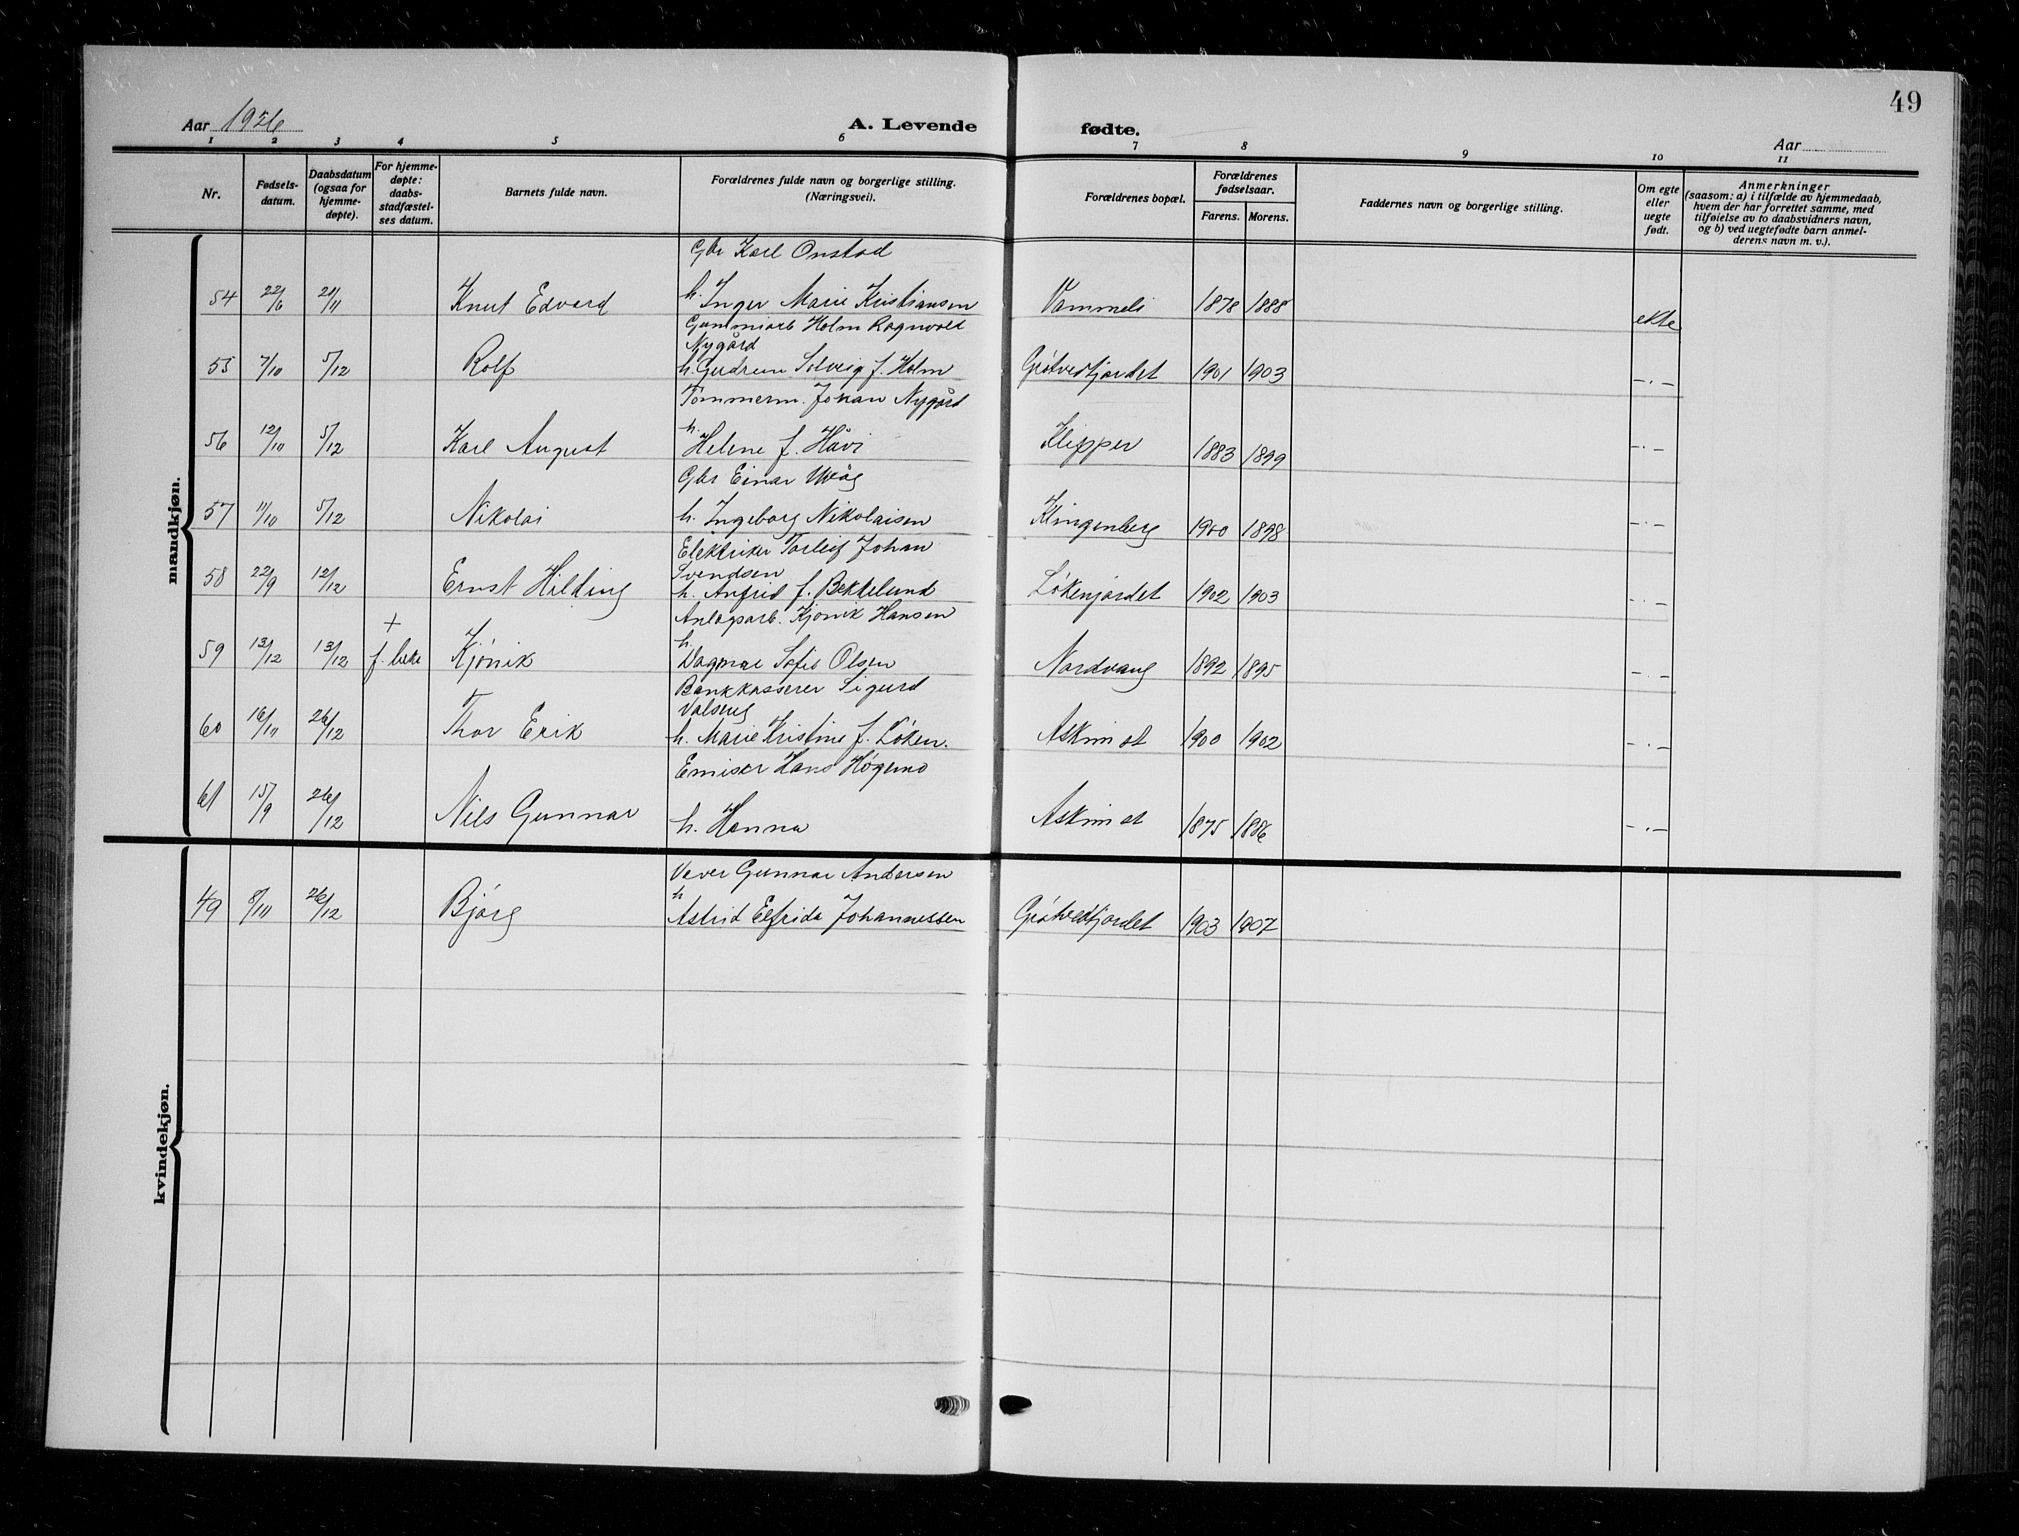 49
Aar 1926
A. Levende fødte.
Aar
1 2 3 4 5 6 7 8 9 10 11
Nr.
Fødsels-
datum.
Daabsdatum
(ogsaa for
hjemme-
døpte).
For hjemme-
døpte:
daabs-
stadfæstel-
ses datum.
Barnets fulde navn.
Forældrenes fulde navn og borgerlige stilling.
(Næringsvei).
Forældrenes bopæl.
Forældrenes
fødselsaar.
Farens. Morens.
Faddernes navn og borgerlige stilling.
Om egte
eller
uegte
født.
Anmerkninger
(saasom: a) i tilfælde av hjemmedaab,
hvem der har forrettet samme, med
tilføielse av to daabsvidners navn,
og b) ved uegtefødte barn anmel-
derens navn m. v.).
mandkjøn.
Gbr Karl Onstad
54 22/6 21/11 Knut Edvard h. Inger Marie Kristiansen Vammeli 1878 1888 ekte
Gummiarb Holm Ragnvald
Nygård
55 7/10 5/12 Rolf h. Gudrun Solveig f. Holm Grøtvedtjordet 1901 1903 -.-
Tømmerm. Johan Nygård
56 12/10 5/12 Karl August h. Helene f. Håvi Klipper 1883 1899 -.-
Gbr Einar
57 11/10 5/12 Nikolai h. Ingeborg Nikolaisen Klingenberg 1900 1898 -.-
Elektriker Torleif Johan
Svendsen
58 22/9 12/12 Ernst Hilding h. Anfrid f. Bekkelund Løkenjordet 1902 1903 -.-
Anlagsarb. Kjønik Hansen
+
59 13/12 13/12 f. Kjønik h. Dagmar Sofie Olsen Nordvang 1892 1895 -.-
Bankkasserer Sigurd
60 16/11 26/12 Thor Erik h. Marie Kristine f. Løken. Askim st 1900 1902 -.-
Hans
61 15/9 26/12 Nils Gunnar h. Hanna Askim st 1875 1886 -.-
kvindekjøn.
Vever Gunnar Andersen
49 8/11 26/12 Bjørg h Astrid Elfrida Johannessen Grøtvedtjordet 1903 1907